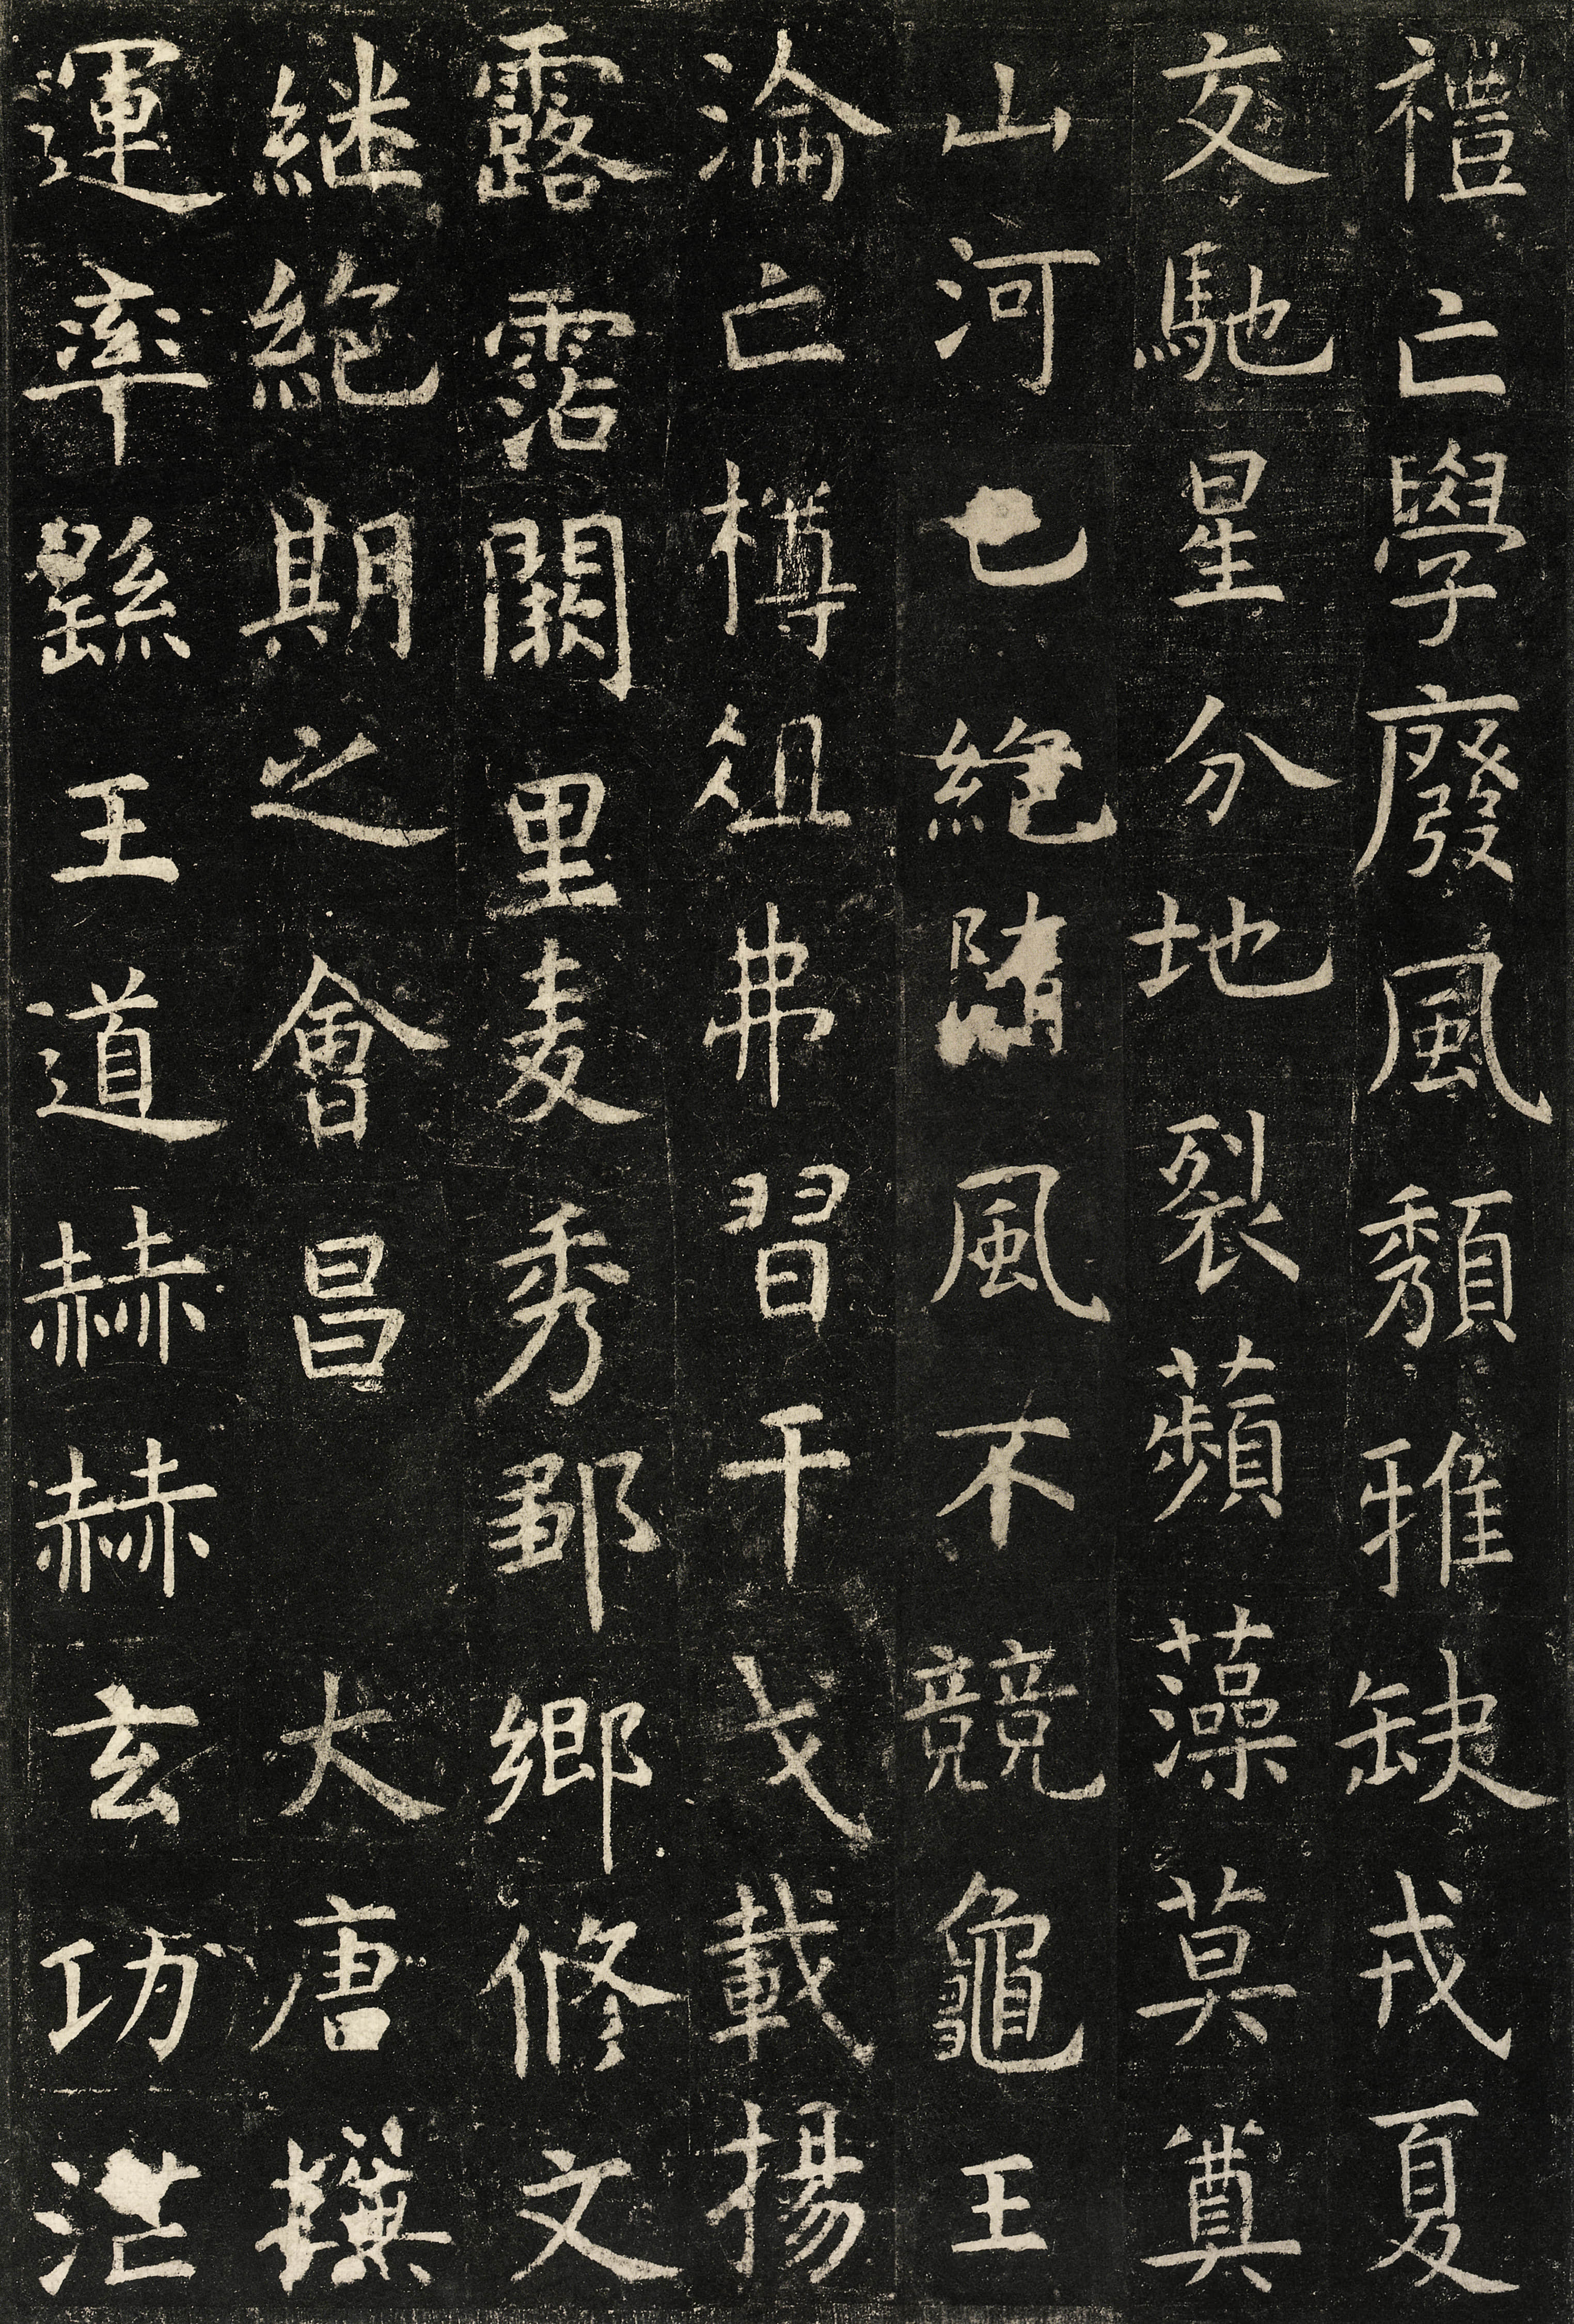 禮亡學廢風頹雅缺戎夏
交馳星分地裂蘋藻莫奠
山河已絕隋風不競龜玉
淪亡樽俎弗習干戈載揚
露霑闕里麦秀鄒鄉修文
継絕期之會昌 大唐撰
運率繇王道赫赫玄功茫